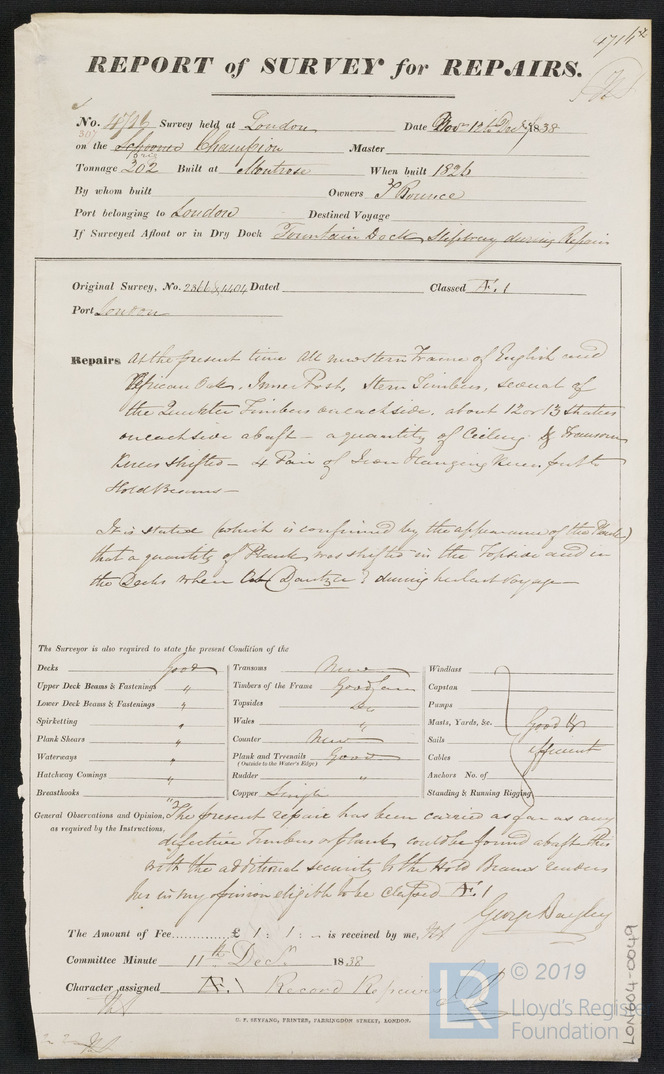 REPORT of SURVEY for REPAIRS.
No. Survey held at London Date 1838
307
on the Champion Master
Tonnage 202 Built at Montrose When built 1826
By whom built Owners Bounce
Port belonging to London Destined Voyage
If Surveyed Afloat or in Dry Dock Fountain Dock, Stepney during Repair
Original Survey, No. Dated Classed Æ.1
Port London
Repairs At the present time All new Stern Frame of English and
African Oak, Inner Post, Stern Timbers, several of
the Timbers on each side, about 12 or 13
on each side abaft – a quantity of Ceiling & Transom
Knees shifted – 4 Pair of Iron Hanging Knees put to
Hold Beams –
It is stated (which is confirmed by the appearance of the Plank)
that a quantity of Plank was shifted in the Topside and in
the Decks when at Dantzic during her last Voyage
The Surveyor is also required to state the present Condition of the
Decks Good
Upper Deck Beams & Fastenings "
Lower Deck Beams & Fastenings "
Spirketting "
Plank Shears "
Waterways "
Hatchway Comings "
Breasthooks "
Transoms New
Timbers of the Frame Good
Topsides Do
Wales "
Counter New
Plank and Treenails Good
(Outside to the Water's Edge)
Rudder "
Copper Single
Windlass
Capston
Pumps
Masts, Yards, &c. Good &
Sails efficient
Cables
Anchors No. of
Standing & Running Rigging
General Observations and Opinion, The present repair has been carried as far as any
as required by the Instructions,
defective Timbers or plank could be found abaft. This
with the additional security to the Hold Beams renders
her in my opinion eligible to be classed Æ.1
George Bayley
The Amount of Fee............ £ 1 : 1 : – is received by me,
Committee Minute 11th Decr. 1838
Character assigned Æ.1 Record Repairs
C. F. SEYFANG, PRINTER, FARRINGDON STREET, LONDON.
LON604-0049
LR © 2019
Lloyd's Register
Foundation